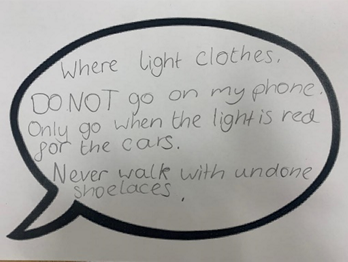 Where light clothes.
DO NOT go on my phone.
Only go when the light is red
for the cars.
Never walk with undone
shoelaces.